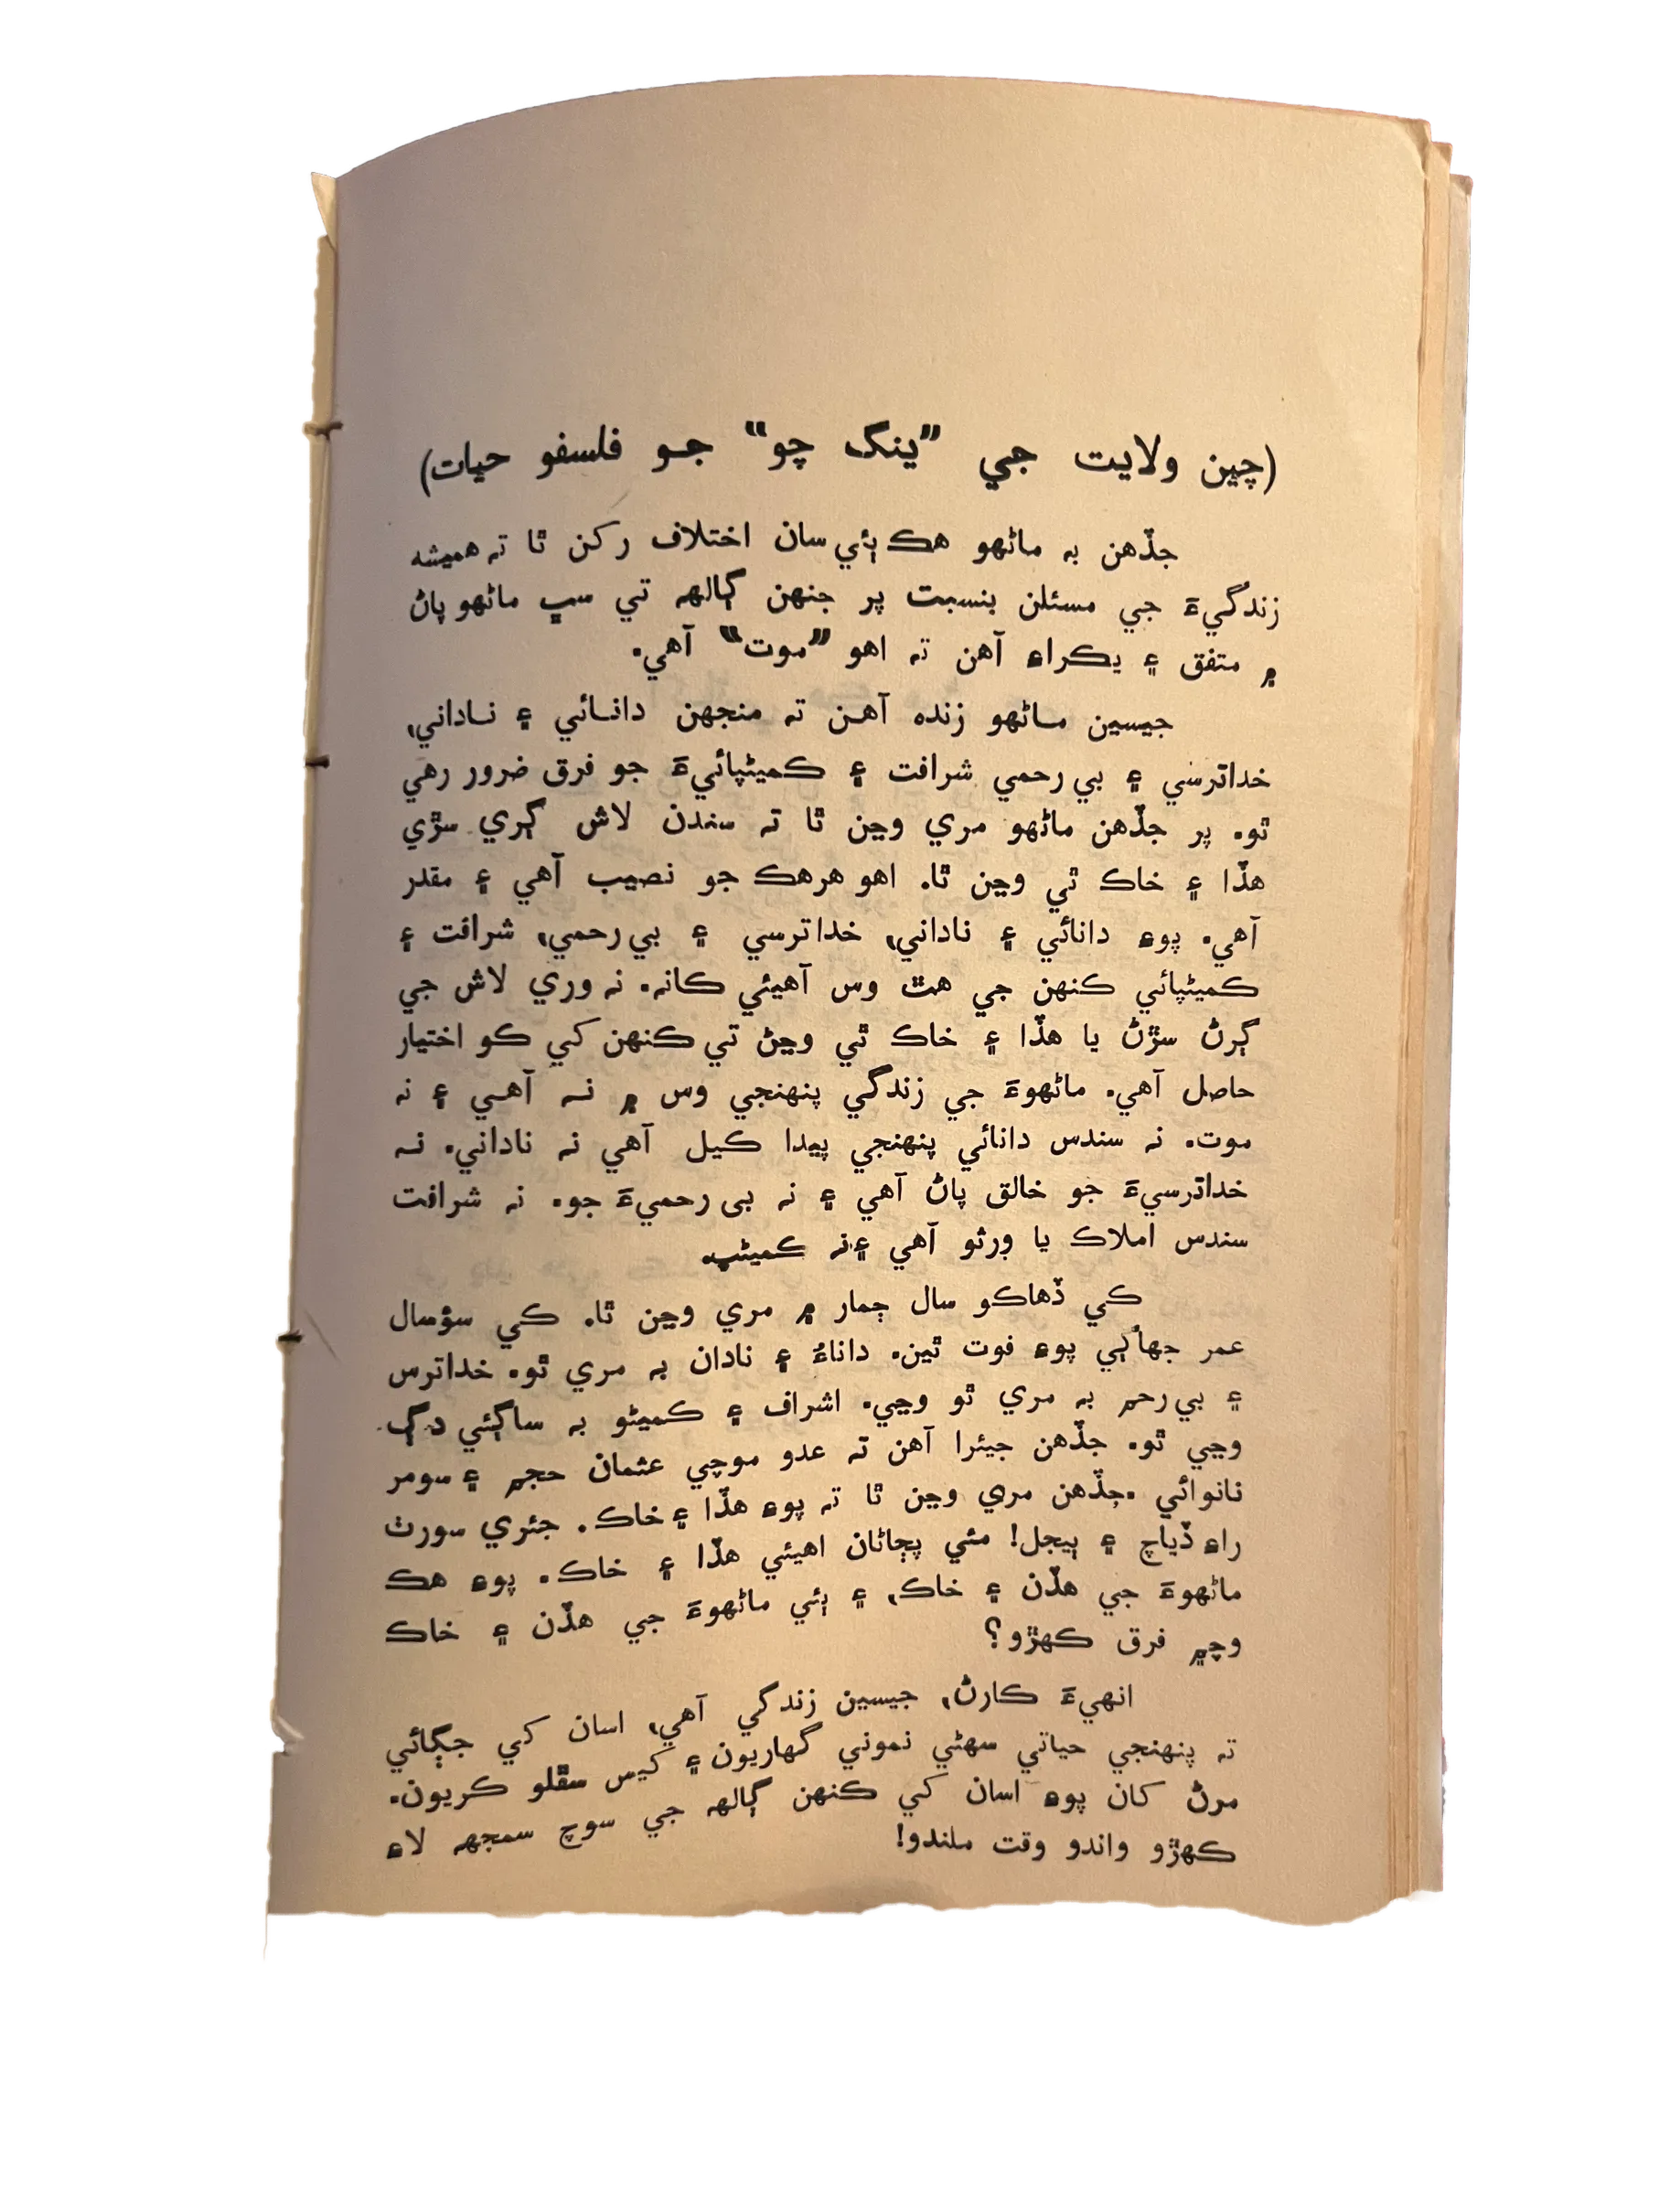 (چين ولايت جي ”ينگ چو“ جو فلسفو حيات)
جڏهن به ماڻهو هڪ ٻئي سان اختلاف رکن ٿا ته هميشه
زندگيءَ جي مسئلن بنسبت پر جنهن ڳالهه تي سڀ ماڻهو پاڻ
۾ متفق ۽ يڪراءِ آهن ته اهو ”موت“ آهي.
جيسين ماڻهو زنده آهن ته منجهن دانائي ۽ ناداني،
خداترسي ۽ بي رحمي شرافت ۽ ڪميڻپائيءَ جو فرق ضرور رهي
ٿو. پر جڏهن ماڻهو مري وڃن ٿا ته سندن لاش ڳري سڙي
هڏا ۽ خاڪ ٿي وڃن ٿا. اهو هرهڪ جو نصيب آهي ۽ مقدر
آهي. پوءِ دانائي ۽ ناداني، خداترسي ۽ بي رحمي، شرافت ۽
ڪميڻپائي ڪنهن جي هٿ وس آهيئي ڪانه. نه وري لاش جي
ڳرڻ سڙڻ يا هڏا ۽ خاڪ ٿي وڃڻ تي ڪنهن کي ڪو اختيار
حاصل آهي. ماڻهوءَ جي زندگي پنهنجي وس ۾ نه آهي ۽ نه
موت. نه سندس دانائي پنهنجي پيدا ڪيل آهي نه ناداني. نه
خداترسيءَ جو خالق پاڻ آهي ۽ نه بي رحميءَ جو. نه شرافت
سندس املاڪ يا ورثو آهي ۽ نه ڪميڻپ.
ڪي ڏهاڪو سال ڄمار ۾ مري وڃن ٿا. ڪي سؤسال
عمر جهاڳي پوءِ فوت ٿين. داناءُ ۽ نادان به مري ٿو. خداترس
۽ بي رحم به مري ٿو وڃي. اشراف ۽ ڪميڻو به ساڳئي دڳ
وڃي ٿو. جڏهن جيئرا آهن ته عدو موچي عثمان حجم ۽ سومر
نانوائي. جڏهن مري وڃن ٿا ته پوءِ هڏا ۽ خاڪ. جئري سورٺ
راءِ ڏياچ ۽ ٻيجل! مئي پڄاڻان اهيئي هڏا ۽ خاڪ. پوءِ هڪ
ماڻهوءَ جي هڏن ۽ خاڪ، ۽ ٻئي ماڻهوءَ جي هڏن ۽ خاڪ
وچ۾ فرق ڪهڙو؟
انهيءَ ڪارڻ، جيسين زندگي آهي، اسان کي جڳائي
ته پنهنجي حياتي سهڻي نموني گهاريون ۽ کيس سڦلو ڪريون.
مرڻ کان پوءِ اسان کي ڪنهن ڳالهه جي سوچ سمجهه لاءِ
ڪهڙو واندو وقت ملندو!